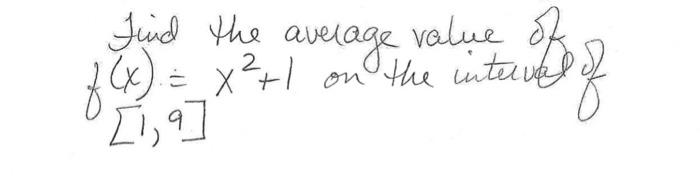 Find the average value of
f(x) = x²+1 on the interval of
[1,9]